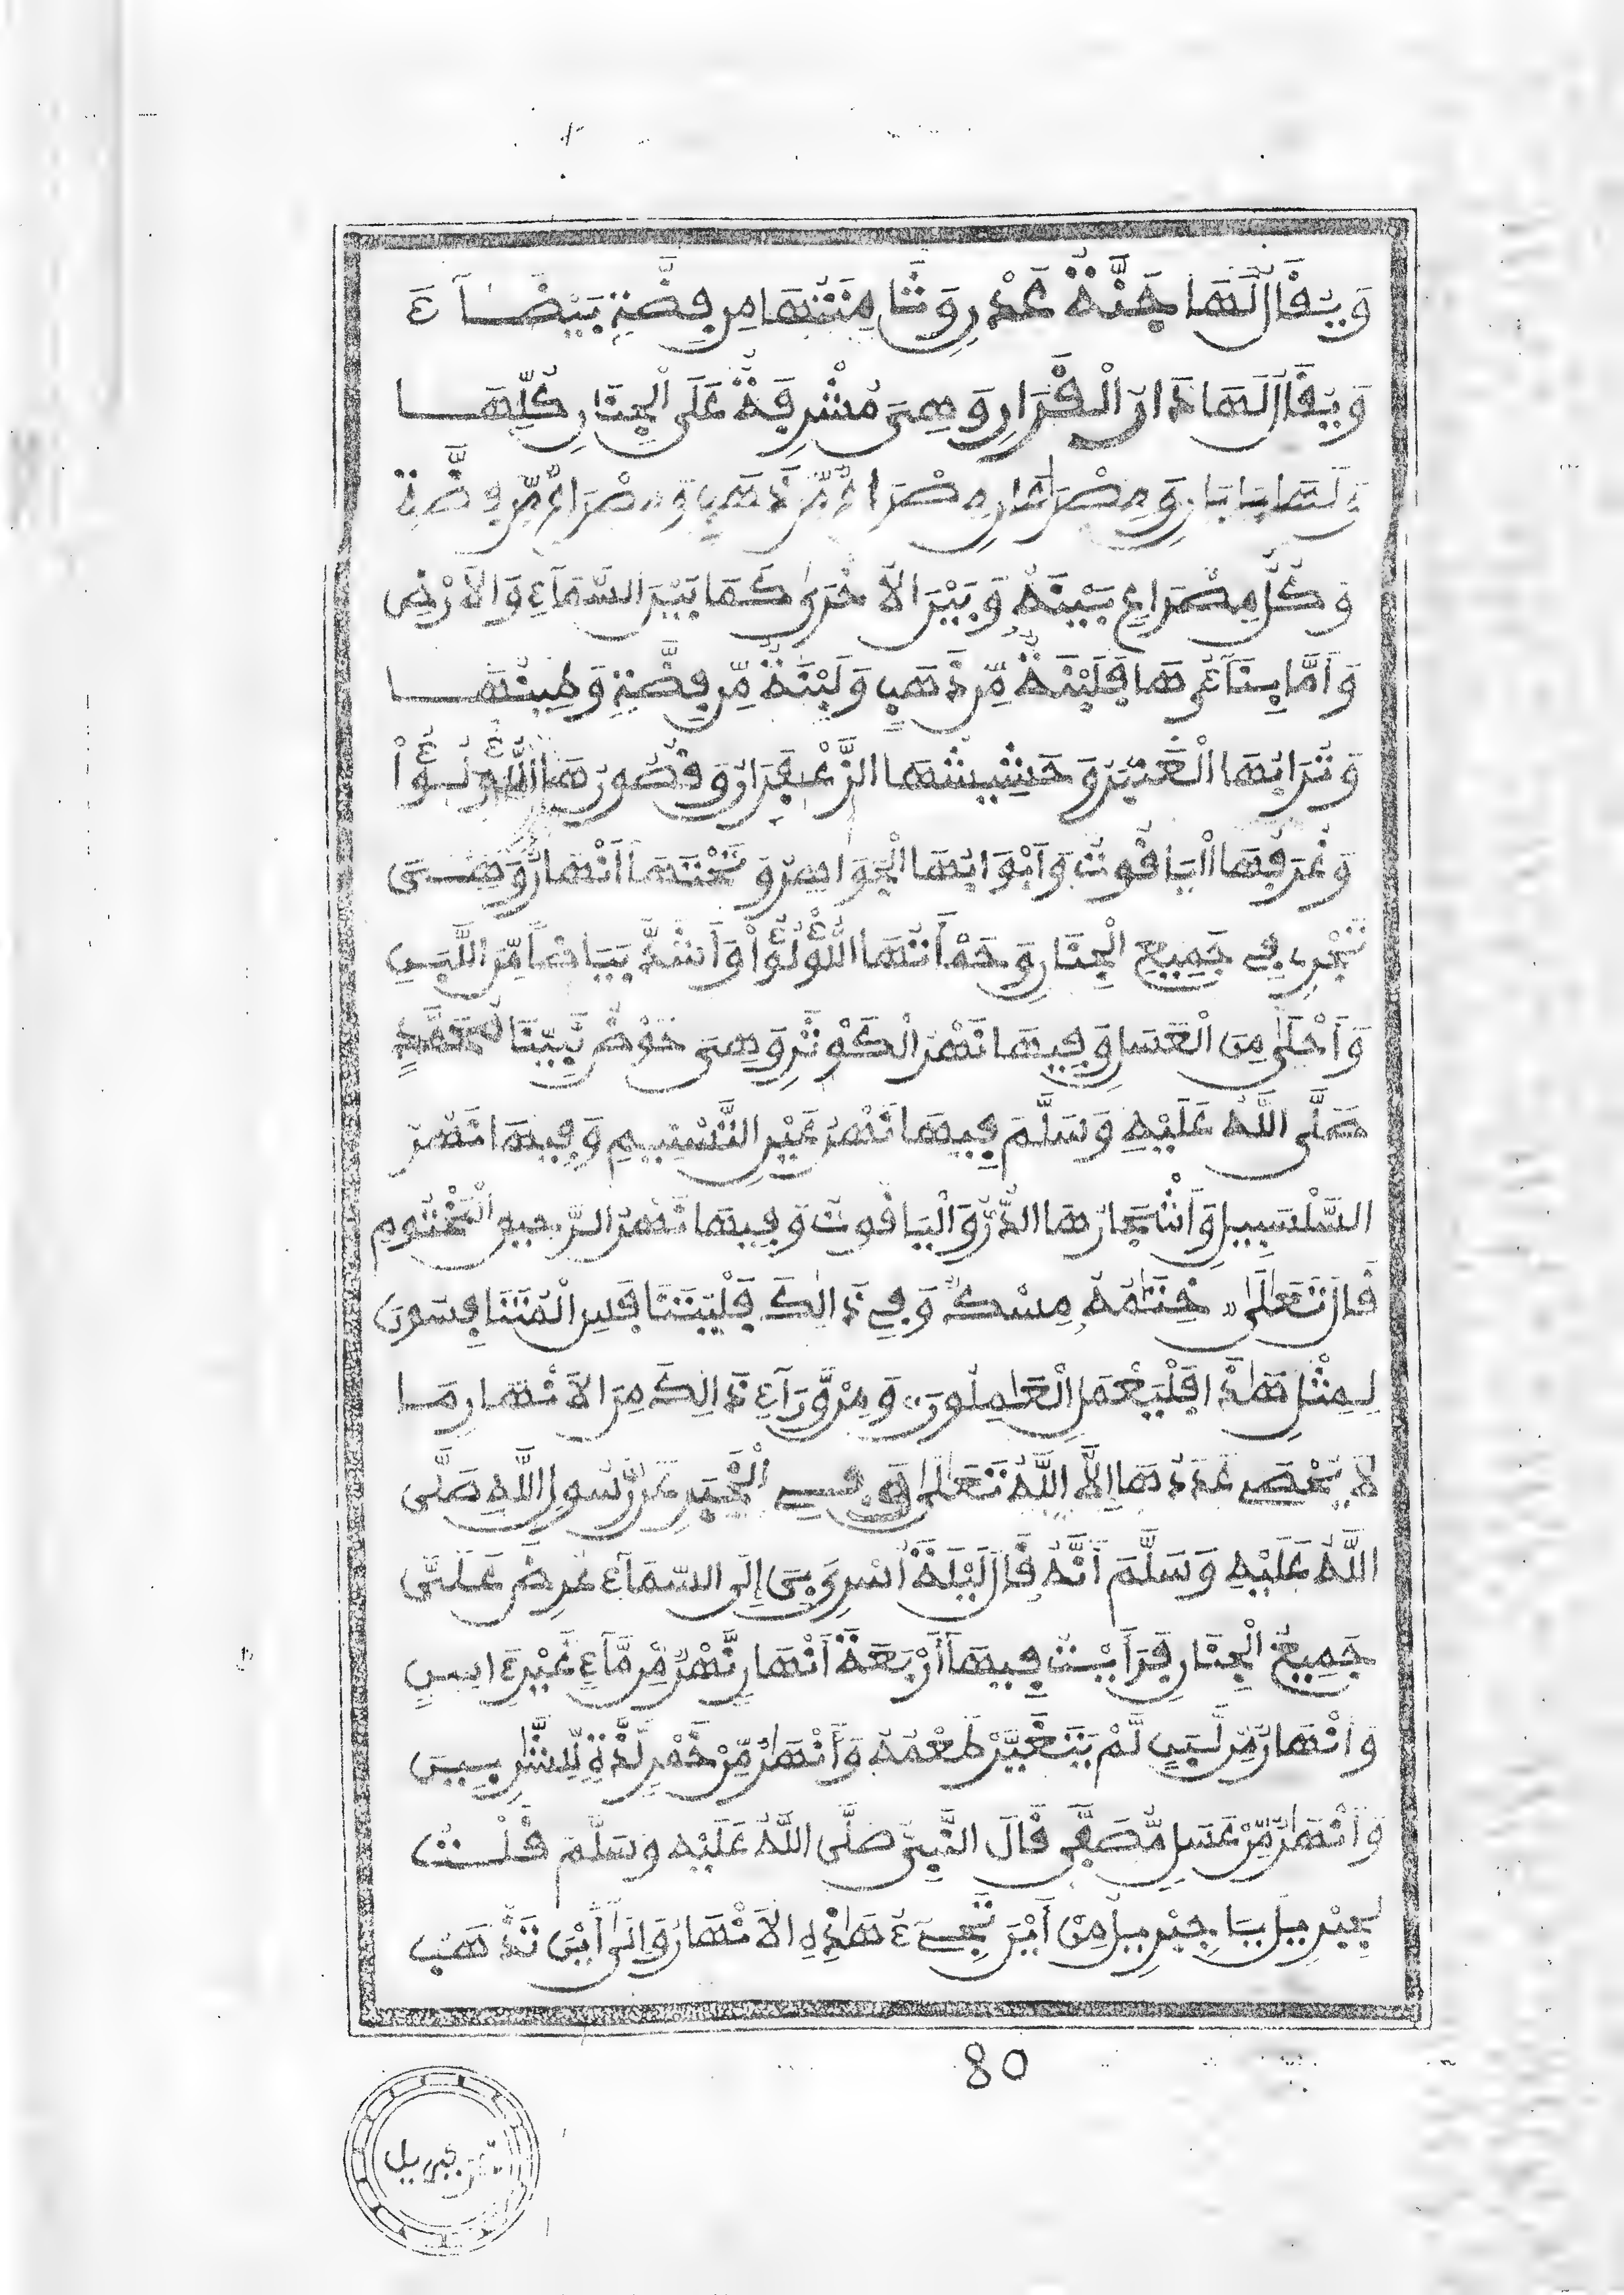 وَيُقَالُ لَهَا جَنَّةُ عَدْنٍ وَثَامِنَتُهَا مِن فِضَّةٍ بَيْضَآءَ
وَيُقَالُ لَهَا دَارُ الْقَرَارِ وَهِيَ مُشْرِفَةٌ عَلَى الْجِنَانِ كُلِّهَا
وَلَهَا بَابَانِ وَمِصْرَاعَانِ مِصْرَاعٌ مِّن ذَهَبٍ وَمِصْرَاعٌ مِّن فِضَّةٍ
وَكُلُّ مِصْرَاعٍ بَيْنَهُ وَبَيْنَ الْأُخْرَى كَمَا بَيْنَ السَّمَآءِ وَالْأَرْضِ
وَأَمَّا بِنَآؤُهَا فَلَبْنَةٌ مِّن ذَهَبٍ وَلَبْنَةٌ مِّن فِضَّةٍ وَطِينُهَا
وَتُرَابُهَا الْعَنْبَرُ وَحَشِيشُهَا الزَّعْفَرَانُ وَقُصُورُهَا اللُّؤْلُؤُاْ
وَغُرَفُهَا الْيَاقُوتُ وَأَبْوَابُهَا الْجَوَاهِرُ وَتَحْتَهَا أَنْهَارٌ وَهِيَ
تَجْرِي فِي جَمِيعِ الْجِنَانِ وَحَمْأَتُهَا اللُّؤْلُؤُاْ وَأَشَدُّ بَيَاضًا مِّنَ اللَّبَنِ
وَأَحْلَى مِنَ الْعَسَلِ وَفِيهَا نَهْرُ الْكَوْثَرِ وَهِيَ حَوْضُ نَبِيِّنَا مُحَمَّدٍ
صَلَّى اللَّهُ عَلَيْهِ وَسَلَّمَ فِيهَا نَهْرُ عَيْنِ التَّسْنِيمِ وَفِيهَا نَهْرُ
السَّلْسَبِيلِ وَأَشْجَارُهَا الدُّرُّ وَالْيَاقُوتُ وَفِيهَا نَهْرُ الرَّحِيقِ الْمَخْتُومِ
قَالَ تَعَالَى" خِتَامُهُ مِسْكٌ وَفِي ذَالِكَ فَلْيَتَنَافَسِ الْمُتَنَافِسُونَ
لِمِثْلِ هَذَا فَلْيَعْمَلِ الْعَامِلُونَ" وَمِنْ وَّرَآءِ ذَالِكَ مِنَ الْأَنْهَارِ مَا
لَا يُحْصِي عَدَدَهَا إِلَّا اللَّهُ تَعَالَى وَفِي الْخَبَرِ عَن رَّسُولِ اللَّهِ صَلَّى
اللَّهُ عَلَيْهِ وَسَلَّمَ أَنَّهُ قَالَ لَيْلَةَ أُسْرِيَ بِيَ إِلَى السَّمَآءِ عُرِضَ عَلَيَّ
جَمِيعُ الْجِنَانِ فَرَأَيْتُ فِيهَآ أَرْبَعَةَ أَنْهَارٍ نَهْرٌ مِّن مَّآءٍ غَيْرِ ءَاسِنٍ
وَأَنْهَارٌ مِّن لَّبَنٍ لَّمْ يَتَغَيَّرْ طَعْمُهُ وَأَنْهَارٌ مِّنْ خَمْرٍ لَّذَّةٍ لِّلشَّارِبِينَ
وَأَنْهَارٌ مِّنْ عَسَلٍ مُّصَفًّى قَالَ النَّبِيُّ صَلَّى اللَّهُ عَلَيْهِ وَسَلَّمَ قُلْتُ
لِجِبْرِيلَ يَا جِبْرِيلُ مِنْ أَيْنَ تَجِيءُ هَذِهِ الْأَنْهَارُ وَإِلَى أَيْنَ تَذْهَبُ
80
جبريل